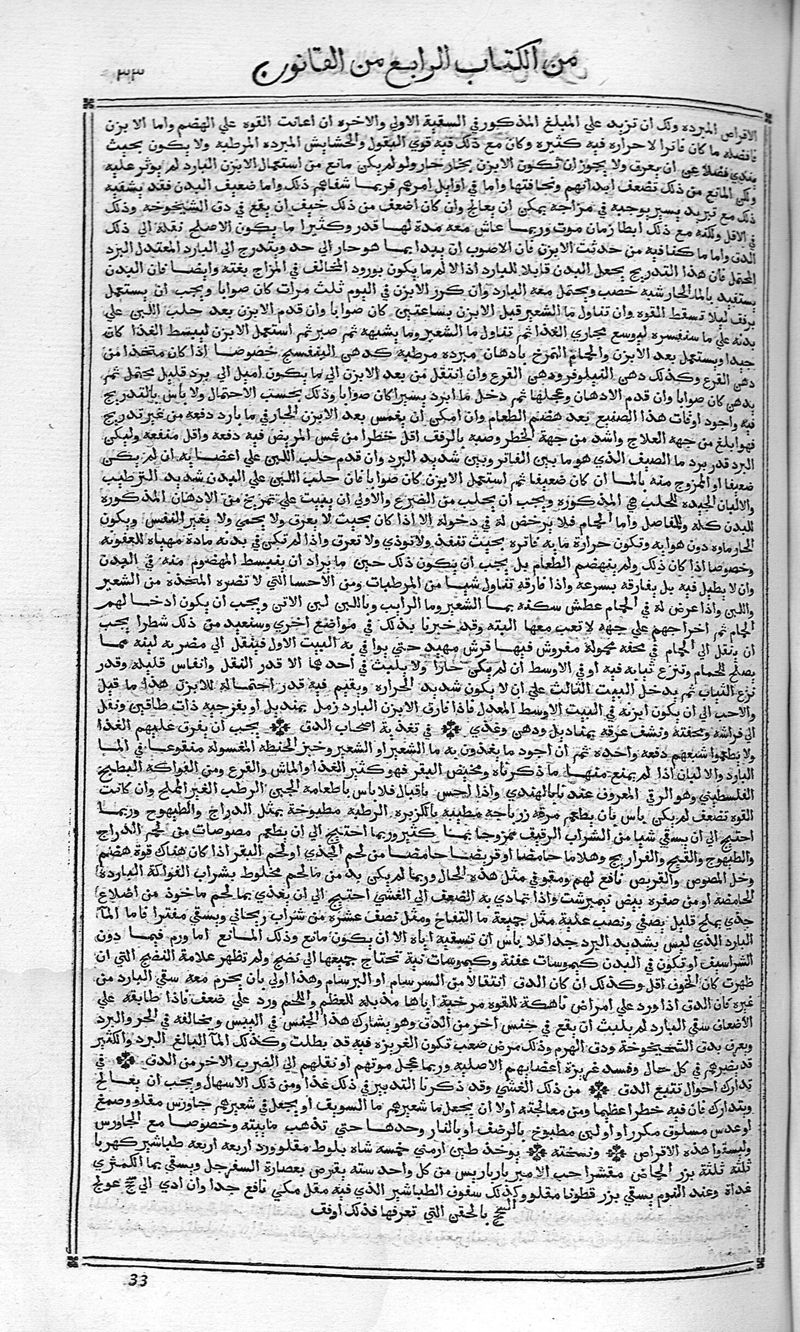 من الكتاب الرابع من القانون
٣٣
الاقراص المبرده ولك ان تزيد علي المبلغ المذكور في السقية الاولي والاخره ان اعانت القوه علي الهضم واما الابزن
فافضله ما كان فاترا لا حراره فيه كثيره وكان مع ذلك فيه قوي البقول والحشايش المبرده المرطبه ولا يكون بحيث
فضلا عن ان يعرق ولا يجوز ان تكون الابزن بخار حار ولو لم يكن مانع من استعمال الابزن البارد لم يوثر عليه
ولكن المانع من ذلك تضعف ابدانهم ونحافتها واما في اوايل امرهم فربما شفاهم ذلك واما ضعيف البدن فقد يشفيه
ذلك مع تبريد يسير يوجبه في مزاجه يمكن ان يعالج وان كان اضعف من ذلك خيف ان يقع في دق الشيخوخه وذلك
في الاقل ولكنه مع ذلك ابطا زمان موت وربما عاش معه مدة لها قدر وكثيرا ما يكون الاصلح نقلة الي ذلك
الدق واما ما كنا فيه من حديث الابزن فان الاصوب ان يبدا بما هو حار الي حد ويتدرج الي البارد المعتدل البرد
المحتمل فان هذا التدريج يجعل البدن قابلا للبارد اذ الالم ما يكون بورود المخالف في المزاج بغته وايضا فان البدن
يستفيد بالما الحار شبه خصب ويحتمل معه البارد وان كرر الابزن في اليوم ثلث مرات كان صوابا ويجب ان يستعمل
برفق ليلا تسقط القوه وان تناول ما الشعير قبل الابزن بساعتين كان صوابا وان قدم الابزن بعد حلب اللبن علي
بدنه علي ما سنفسره ليوسع مجاري الغذا ثم تناول ما الشعير وما يشبهه ثم صبر ثم استعمل الابزن ليبسط الغذا كان
جيدا ويستعمل بعد الابزن والحمام التمرخ بادهان مبرده مرطبه كدهن البنفسج خصوصا اذا كان متخذا من
دهن القرع وكذلك دهن النيلوفر ودهن القرع وان انتقل من بعد الابزن الي ما يكون اميل الي برد قليل محتمل ثم
يدهن كان صوابا وان قدم الادهان وعجلها ثم دخل ما ابرد يسيرا كان صوابا وذلك بحسب الاحتمال ولا باس بالتدريج
فيه واجود اوقات هذا الصنيع بعد هضم الطعام وان امكن ان يغمس بعد الابزن الحار في ما بارد دفعه من غير تدريج
فهو ابلغ من جهه العلاج واشد من جهة الخطر وصبه بالرفق اقل خطرا من غمس المريض فيه دفعه واقل منفعه وليكن
البرد قدر برد ما الصيف الذي هو ما بين الفاتر وبين شديد البرد وان قدم حلب اللبن علي اعضايه ان لم يكن
ضعيفا او الممزوج منه بالما ان كان ضعيفا ثم استعمل الابزن كان صوابا فان حلب اللبن علي البدن شديد الترطيب
والالبان الجيده للحلب هي المذكوره ويجب ان يحلب من الضرع والاولي ان يبيت علي تمريخ من الادهان المذكوره
للبدن كله وللمفاصل واما الحمام فلا يرخص له في دخوله الا اذا كان بحيث لا يعرق ولا يحمي ولا يغير النفس ويكون
الحار ماوه دون هوايه وتكون حرارة مايه فاتره بحيث تنفذ ولا توذي ولا تعرق واذا لم تكن في بدنه مادة مهياه للعفونه
وخصوصا اذا كان ذلك ولم ينهضم الطعام بل يجب ان يكون ذلك حين ما يراد ان ينبسط المهضوم منه في البدن
وان لا يطيل فيه بل يفارقه بسرعه واذا فارقه تناول شيا من المرطبات ومن الاحسا التي لا تضره المتخذه من الشعير
واللبن واذا عرض له في الحمام عطش سكنه بما الشعير وما الرايب وباللبن لبن الاتن ويجب ان يكون ادخالهم
الحمام ثم اخراجهم علي جهه لا تعب معها البته وقد خبرنا بذلك في مواضع اخري وسنعيد من ذلك شطرا يجب
ان ينقل الي الحمام في محفه محموله مفروش فيها فرش مهيد حتي يوافي به البيت الاول فينقل الي مضربه لينه مما
يصلح للحمام وتنزع ثيابه فيه او في الاوسط ان لم يكن حارا ولا يلبث في احدهما الا قدر النقل وانفاس قليله وقدر
نزع الثياب ثم يدخل البيت الثالث علي ان لا يكون شديد الحراره ويقيم فيه قدر احتماله للابزن هذا ما قيل
والاحب الي ان يكون ابزنه في البيت الاوسط المعدل فاذا فارق الابزن البارد زمل بمنديل او بفرجيه ذات طاقين ونقل
الي فراشه ومحفته ونشف عرقه بمناديل ودهن وغذي ❊ في تغذية اصحاب الدق ❊ يجب ان يفرق عليهم الغذا
ولا يطعموا شبعهم دفعه واحده ثم ان اجود ما يغذون به ما الشعير او الشعير وخبز الحنطه المغسوله منقوعا في الما
البارد والالبان اذا لم يمنع منها ما ذكرناه ومخيض البقر فهو كثير الغذا والماش والقرع ومن الفواكه البطيخ
الفلسطيني وهو الرقي المعروف عندنا بالهندي واذا احس باقبال فلا باس باطعامه الجبن الرطب الغير المملح وان كانت
القوه تضعف لم يكن باس بان يطعم مرقه زرباجه مطيبه بالكزبره الرطبه مطبوخة بمثل الدراج والطيهوج وربما
احتيج الي ان يسقي شيا من الشراب الرقيق ممزوجا بما كثير وربما احتيج الي ان يطعم مصوصات من لحم الدراج
والطيهوج والقبج والفراريج وهلاما حامضا او قريصا حامضا من لحم الجدي او لحم البقر اذا كان هناك قوة هضم
وخل المصوص والقريص نافع لهم ومقو في مثل هذه الحال وربما لم يكن بد من ما لحم مخلوط بشراب الفواكه البارده
الحامضه او من صفره بيض نيمبرشت واذا تمادي به الضعف الي الغشي احتيج الي ان يغذي بما لحم ماخوذ من اضلاع
جدي بملح قليل يصفي ونصب عليه مثل جميعه ما التفاح ومثل نصف عشره من شراب ريحاني ويسقي مفترا فاما الما
البارد الذي ليس بشديد البرد جدا فلا باس ان تسقيه اياه الا ان يكون مانع وذلك المانع اما ورم فيما دون
الشراسيف او تكون في البدن كيموسات عفنه وكيموسات نيه تحتاج جميعها الي نضج ولم تظهر علامة النضج التي ان
ظهرت كان الخوف اقل وكذلك ان كان الدق انتقالا من السرسام او البرسام وهذا اولي بان يحرم معه سقي البارد من
غيره كان الدق اذا ورد علي امراض ناهكة للقوه مرخية اياها مذبله للعظم واللحم ورد علي ضعف فاذا طابقه علي
الاضعاف سقي البارد لم يلبث ان يقع في جنس اخر من الدق وهو يشارك هذا الجنس في اليبس ويخالفه في الحر والبرد
ويعرف بدق الشيخوخة ودق الهرم وذلك مرض صعب تكون الغريزه فيه قد بطلت وكذلك الما البالغ البرد والكثير
قد يضرهم في كل حال ويفسد غريزة اعضايهم الاصليه وربما عجل موتهم او نقلهم الي الضرب الاخر من الدق ❊ في
تدارك احوال تتبع الدق ❊ من ذلك الغشي وقد ذكرنا التدبير في ذلك غذا ومن ذلك الاسهال ويجب ان يعالج
ويتدارك فان فيه خطرا عظيما ومن معالجته اولا ان يجعل ما شعيرهم ما السويق او يجعل في شعيرهم جاورس مقلو وصمغ
او عدس مسلوق مكررا او لبن مطبوخ بالرضف او بالنار وحدها حتي تذهب مايته وخصوصا مع الجاورس
وليسقوا هذه الاقراص ❊ ونسخته ❊ يوخذ طين ارمني خمسة شاه بلوط مقلو ورد اربعه اربعه طباشير كهربا
ثلثه ثلثة بزر الحماض مقشرا حب الامير باريس من كل واحد سته يقرص بعصارة السفرجل ويسقي بما الكمثري
غداة وعند النوم يسقي بزر قطونا مقلو وكذلك سفوف الطباشير الذي فيه مقل مكي نافع جدا وان ادي الي سحج عولج
السحج بالحقن التي تعرفها فذلك اوفق
33